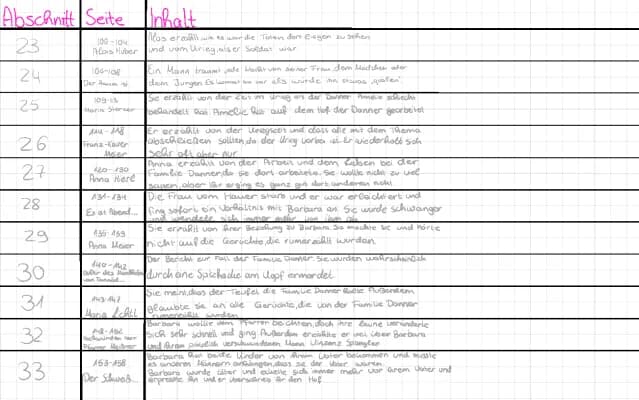 Abschnitt Seite Inhalt
23
100-104
Alois Huber
Alois erzählt, wie es war die Toten dort liegen zu sehen
und vom Krieg, als er Soldat war
24
Ein Mann träumt, oder von seiner Frau, dem Mädchen oder
dem Jungen. Es kommt so vor als würde ihn etwas "quälen".
25
Maria
Sie erzählt von der Zeit im Krieg als der Danner Amelie schlecht
behandelt hat. Amelie hat auf dem Hof der Danner gearbeitet
26
114-118
Franz-Xaver
Meier
Er erzählt von der Kriegszeit und dass alle mit dem Thema
abschließen sollten, da der Krieg vorbei ist. Er wiederholt sich
sehr oft aber nur
27
120-130
Anna Hierl
Anna erzählt von der Arbeit und dem Leben bei der
Familie Danner, da sie dort arbeitete. Sie wollte nicht zu viel
sagen, aber ihr erging es ganz gut dort, anderen nicht
28
131-134
Es ist Abend...
Die Frau vom Hauer starb und er war erleichtert und
fing sofort ein Verhältnis mit Barbara an. Sie wurde schwanger
und wendete sich immer mehr von ihm ab
29
135-139
Anna Meier
Sie erzählt von ihrer Beziehung zu Barbara. Sie mochte sie und hörte
nicht auf die Gerüchte, die rumerzählt wurden
30
140-142
Der Bericht zur Fall der Familie Danner. Sie wurden wahrscheinlich
durch eine Spitzhacke am Kopf ermordet
31
143-147
Maria Lichtl
Sie meint, dass der Teufel die Familie Danner holte. Außerdem
glaubte sie an alle Gerüchte, die von der Familie Danner
rumerzählt wurden
32
148-152
Pfarrer Meißner
Barbara wollte dem Pfarrer beichten, doch ihre Laune veränderte
sich sehr schnell und ging. Außerdem erzählte er viel über Barbara
und ihrem plötzlich verschwundenen Mann Vinzenz Spangler
33
153-158
Der Schweiß...
Barbara hat beide Kinder von ihrem Vater bekommen und musste
es anderen Männern anhängen, dass sie der Vater waren.
Barbara wurde älter und ekelte sich immer mehr vor ihrem Vater und
erpresste ihn und er überschrieb ihr den Hof